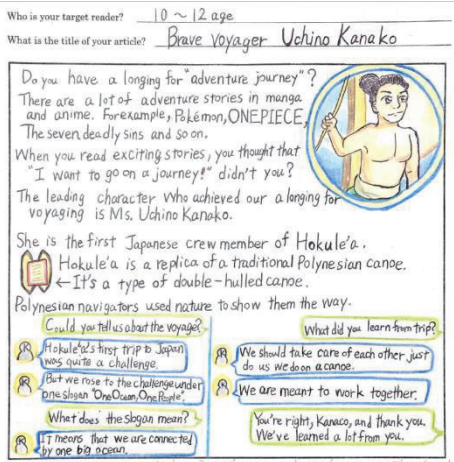 Who is your target reader? 10 ~ 12 age
What is the title of your article? Brave voyager Uchino Kanako
Do you have a longing for "adventure journey"?
There are a lot of adventure stories in manga
and anime. Forexample, Pokémon, ONE PIECE,
The seven deadly sins and so on.
When you read exciting stories, you thought that
"I want to go on a journey!" didn't you?
The leading character who achieved our a longing for
voyaging is Ms. Uchino Kanako.
She is the first Japanese crew member of Hokule'a.
Hokule'a is a replica of a traditional Polynesian canoe.
←It's a type of double-hulled canoe.
Polynesian navigators used nature to show them the way.
Could you tell us about the voyage?
Hokule'a's first trip to Japan
was quite a challenge.
But we rose to the challenge under
one slogan "One Ocean, One People".
What does the slogan mean?
IT means that we are connected
by one big ocean.
What did you learn from trip?
We should take care of each other just
do us we do on a canoe.
We are meant to work together.
You're right, Kanaco, and thank you.
We've learned a lot from you.